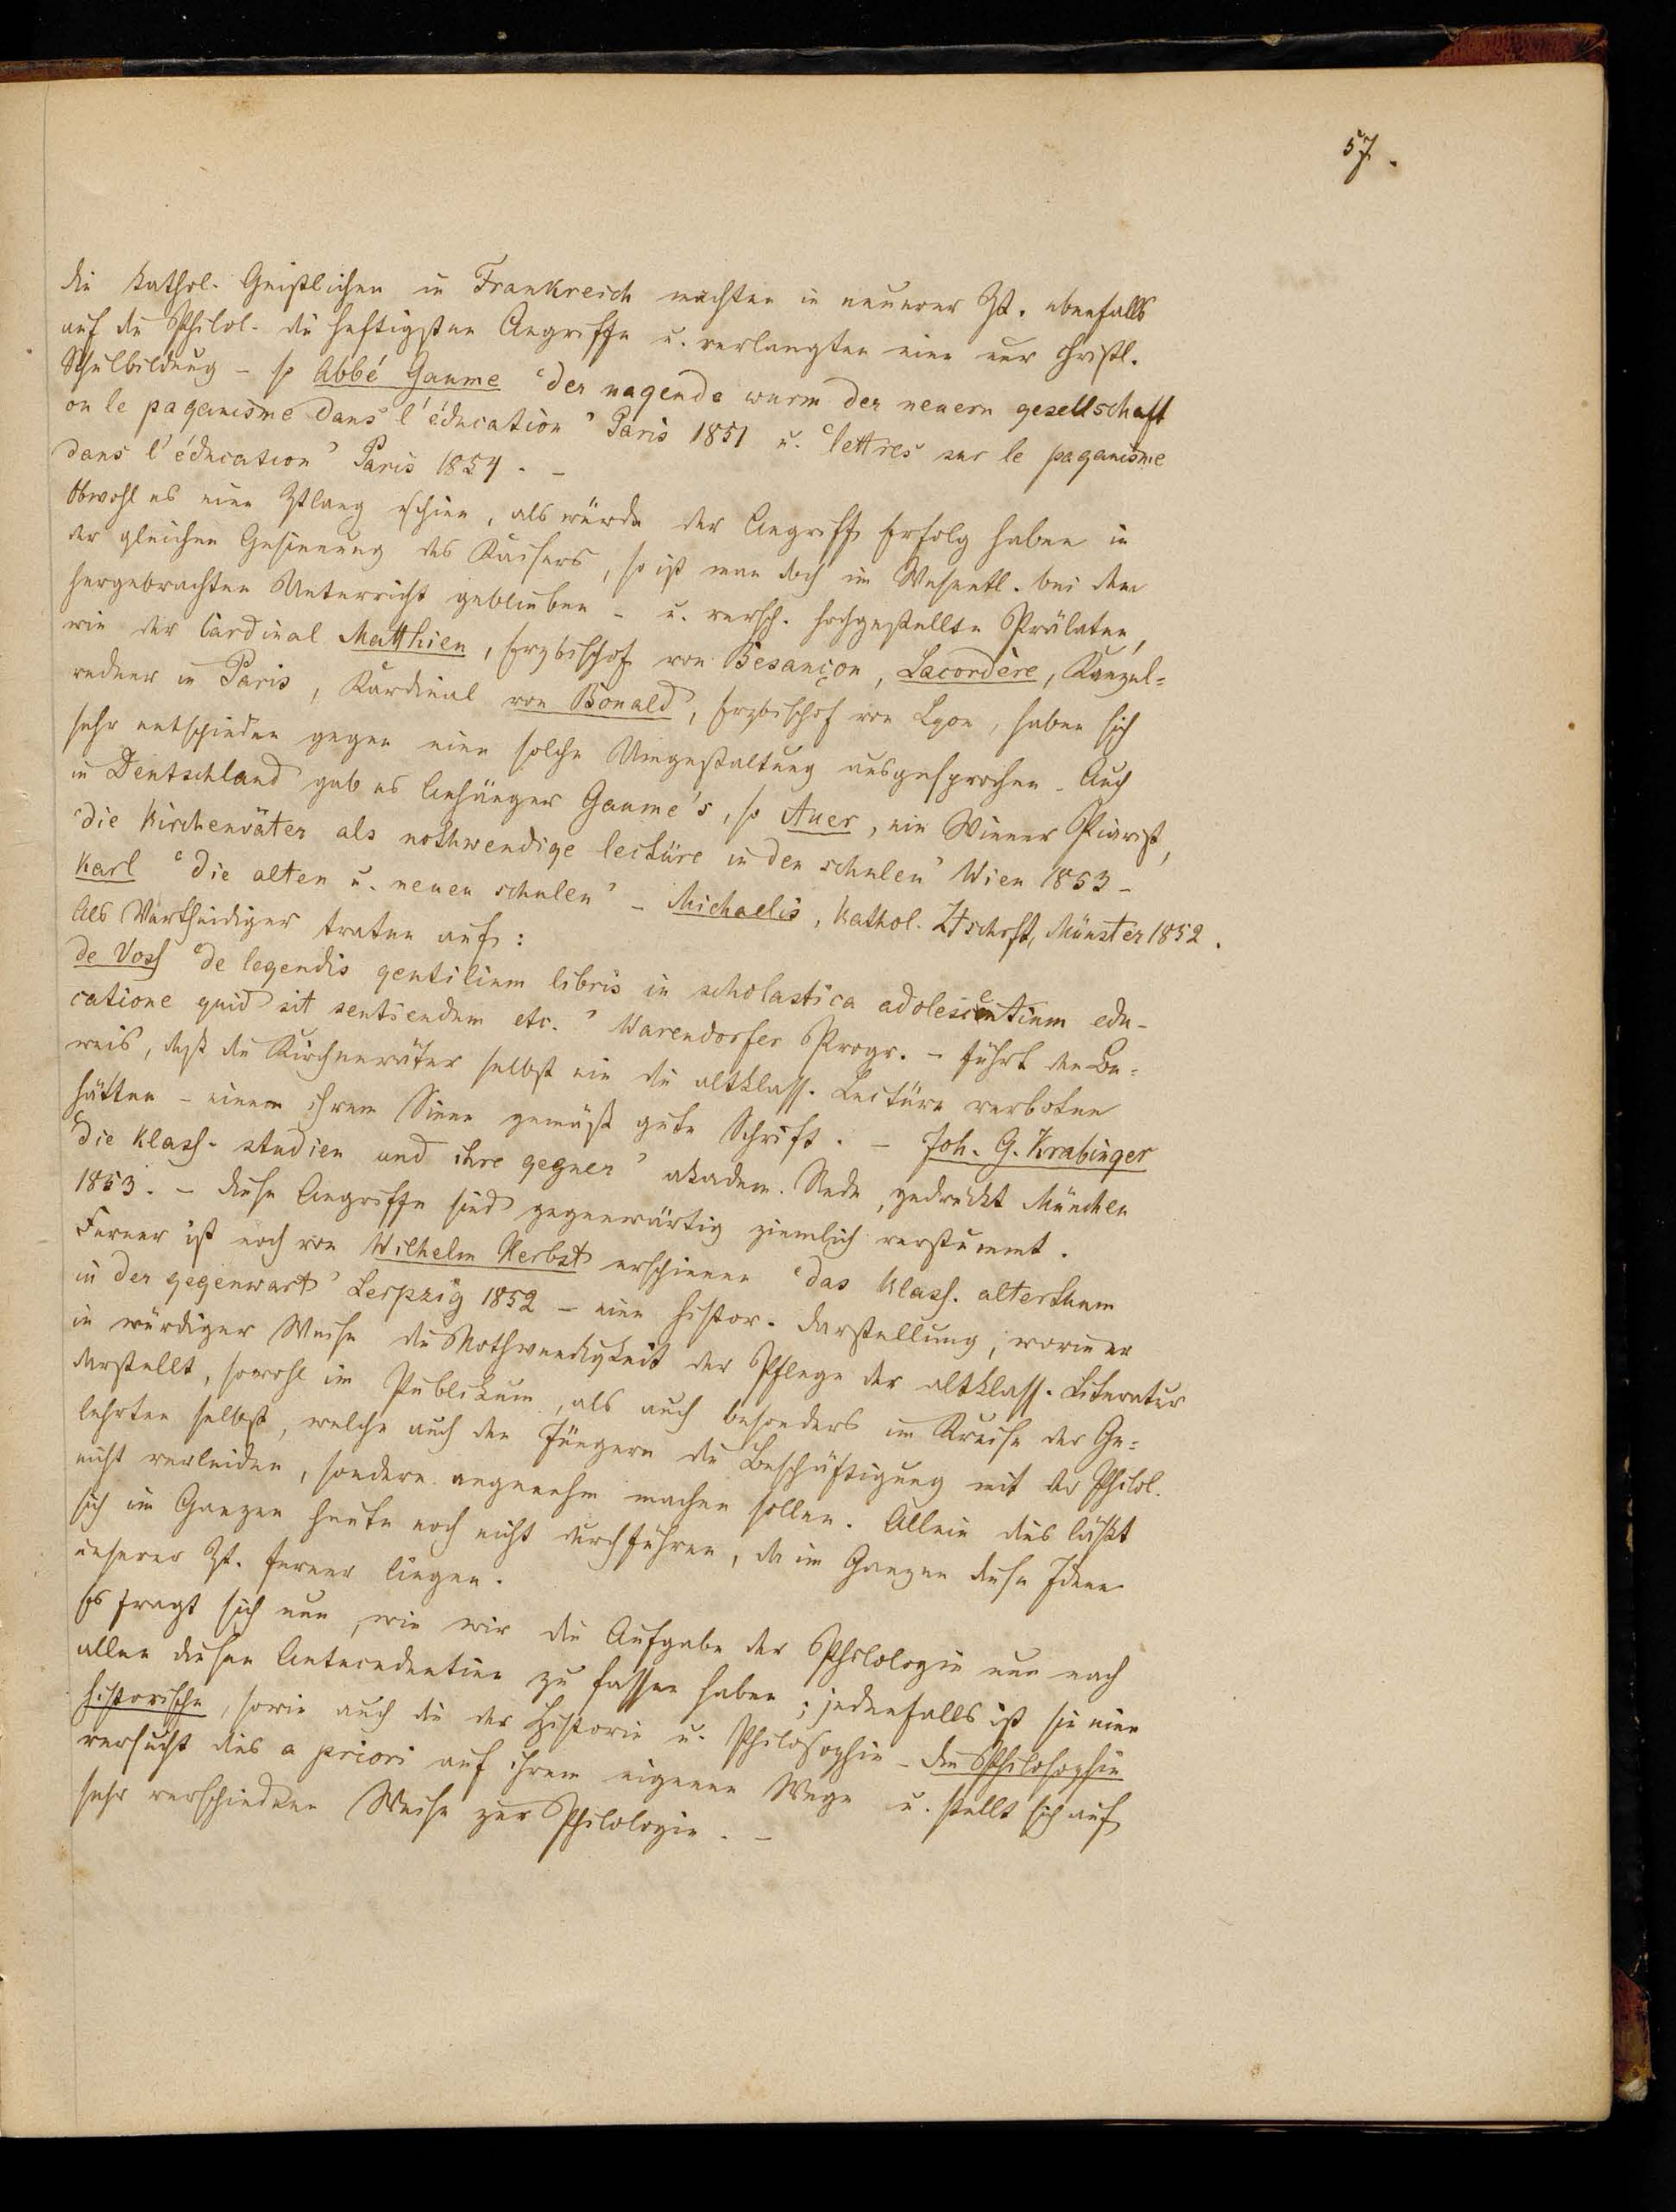 57.
die kathol. Geistlichen in Frankreich machten in neuerer Zt. ebenfalls
auf die Philol. die heftigsten Angriffe u. verlangten eine nur christl.
Schulbildung – so Abbé Gaume ‘der nagende wurm der neuern gesellschaft
ou le paganisme dans l'éducation’ Paris 1851 u. ‘lettres sur le paganisme
dans l'éducation’ Paris 1854. –
Obwohl es eine Ztlang schien, als würde der Angriff Erfolg haben in
der gleichen Gesinnung des Kaisers, so ist man doch im Wesentl. bei dem
hergebrachten Unterricht geblieben – u. versch. hochgestellte Prälaten,
wie der Cardinal Matthieu, Erzbischof von Besançon, Lacordère, Kanzel=
redner in Paris, Kardinal von Bonald, Erzbischof von Lyon, haben sich
sehr entschieden gegen eine solche Umgestaltung ausgesprochen. Auch
in Deutschland gab es Anhänger Gaume's, so Auer, ein Wiener Piarist,
‘die Kirchenväter als nothwendige lectüre in den schulen’ Wien 1853 –
Karl ‘die alten u. neuen schulen’ – Michaelis, Kathol. Ztschrft, Münster 1852.
Als Vertheidiger traten auf:
de Voss ‘de legendis gentilium libris in scholastica adolescentium edu-
catione quid sit sentiendum etc.’ Warendorfer Progr. – führt den Be=
weis, daß die Kirchenväter selbst nie die altklass. Lectüre verboten
hätten – einem ihrem Sinne gemäß gute Schrift. – Joh. G. Krabinger
‘die klass. studien und ihre gegner’ akadem. Rede, gedruckt München
1853. – diese Angriffe sind gegenwärtig ziemlich verstummt.
Ferner ist noch von Wilhelm Herbst erschienen ‘das klass. alterthum
in der gegenwart’ Leipzig 1852 – eine histor. Darstellung, worin er
in würdiger Weise die Nothwendigkeit der Pflege der altklass. Literatur
darstellt, sowohl im Publikum, als auch besonders im Kreise der Ge=
lehrten selbst, welche auch den Jüngern die Beschäftigung mit der Philol.
nicht verleiden, sondern angenehm machen sollen. Allein dies läßt
sich im Ganzen heute noch nicht durchführen, da im Ganzen diese Ideen
unserer Zt. ferner liegen.
Es fragt sich nun, wie wir die Aufgabe der Philologie nun nach
allen diesen Antecedentien zu fassen haben; jedenfalls ist sie eine
historische, sowie auch die der Historie u. Philosophie – die Philosophie
versucht dies a priori auf ihrem eigenen Wege u. stellt sich auf
sehr verschiedene Weise zur Philologie. –